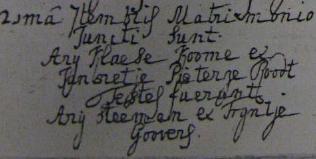 2dmâ 7tembris Matrimonio
Juncti Sunt.
Ary Klaese Koome ex
Jannetje Pieterze Poodt
Testes fuerunt
Ary Steeman ex Tryntje
Goovers.